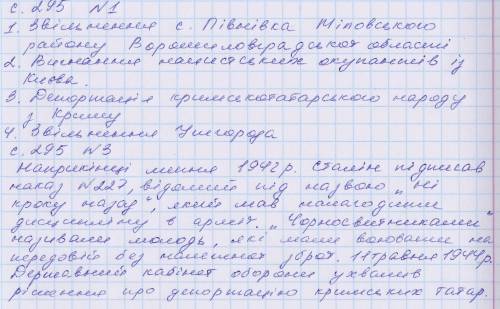 с. 295 №1
1. Звільнення с. Півнівка Міловського
району Ворошиловградської області
2. Вигнання нацистських окупантів із
Києва.
3. Депортація кримськотатарського народу
з Криму
4. Звільнення Ужгорода
с. 295 №3
Наприкінці липня 1942р. Сталін підписав
наказ №227, відомий під назвою „Ні
кроку назад", який мав налагодити
дисципліну в армії. „Чорносвитниками"
називали молодь, які мали воювати на
передовій без належної зброї. 11 травня 1944р.
Державний кабінет оборони ухвалив
рішення про депортацію кримських татар.